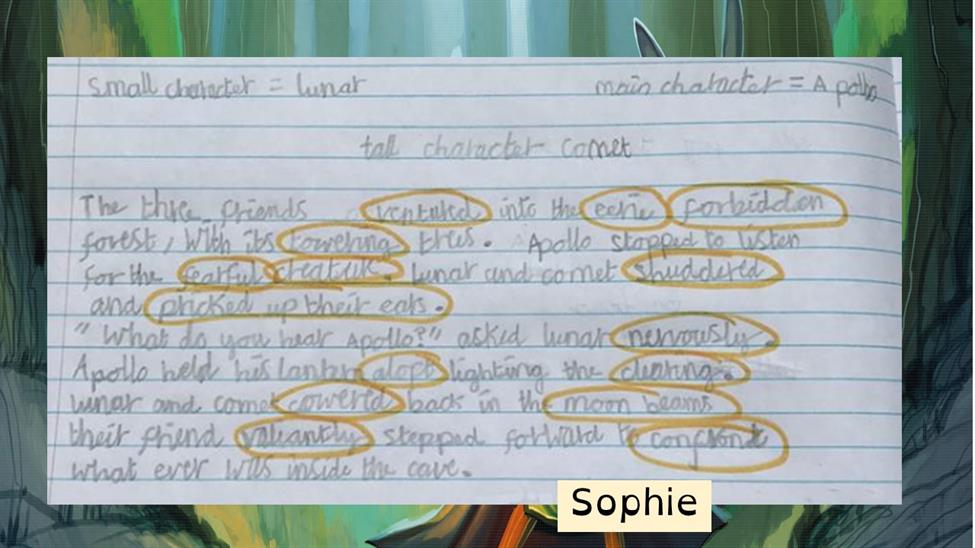 small character = lunar
main character = Apollo
tall character comet
The three friends ventured into the eerie forbidden
forest, with its towering trees. Apollo stopped to listen
for the fearful creature. lunar and comet shuddered
and pricked up their ears.
"What do you hear Apollo?" asked lunar nervously.
Apollo held his lantern alopt lighting the clearing.
lunar and comet cowered back in the moon beams
their friend valiantly stepped forward to confront
what ever was inside the cave.
Sophie